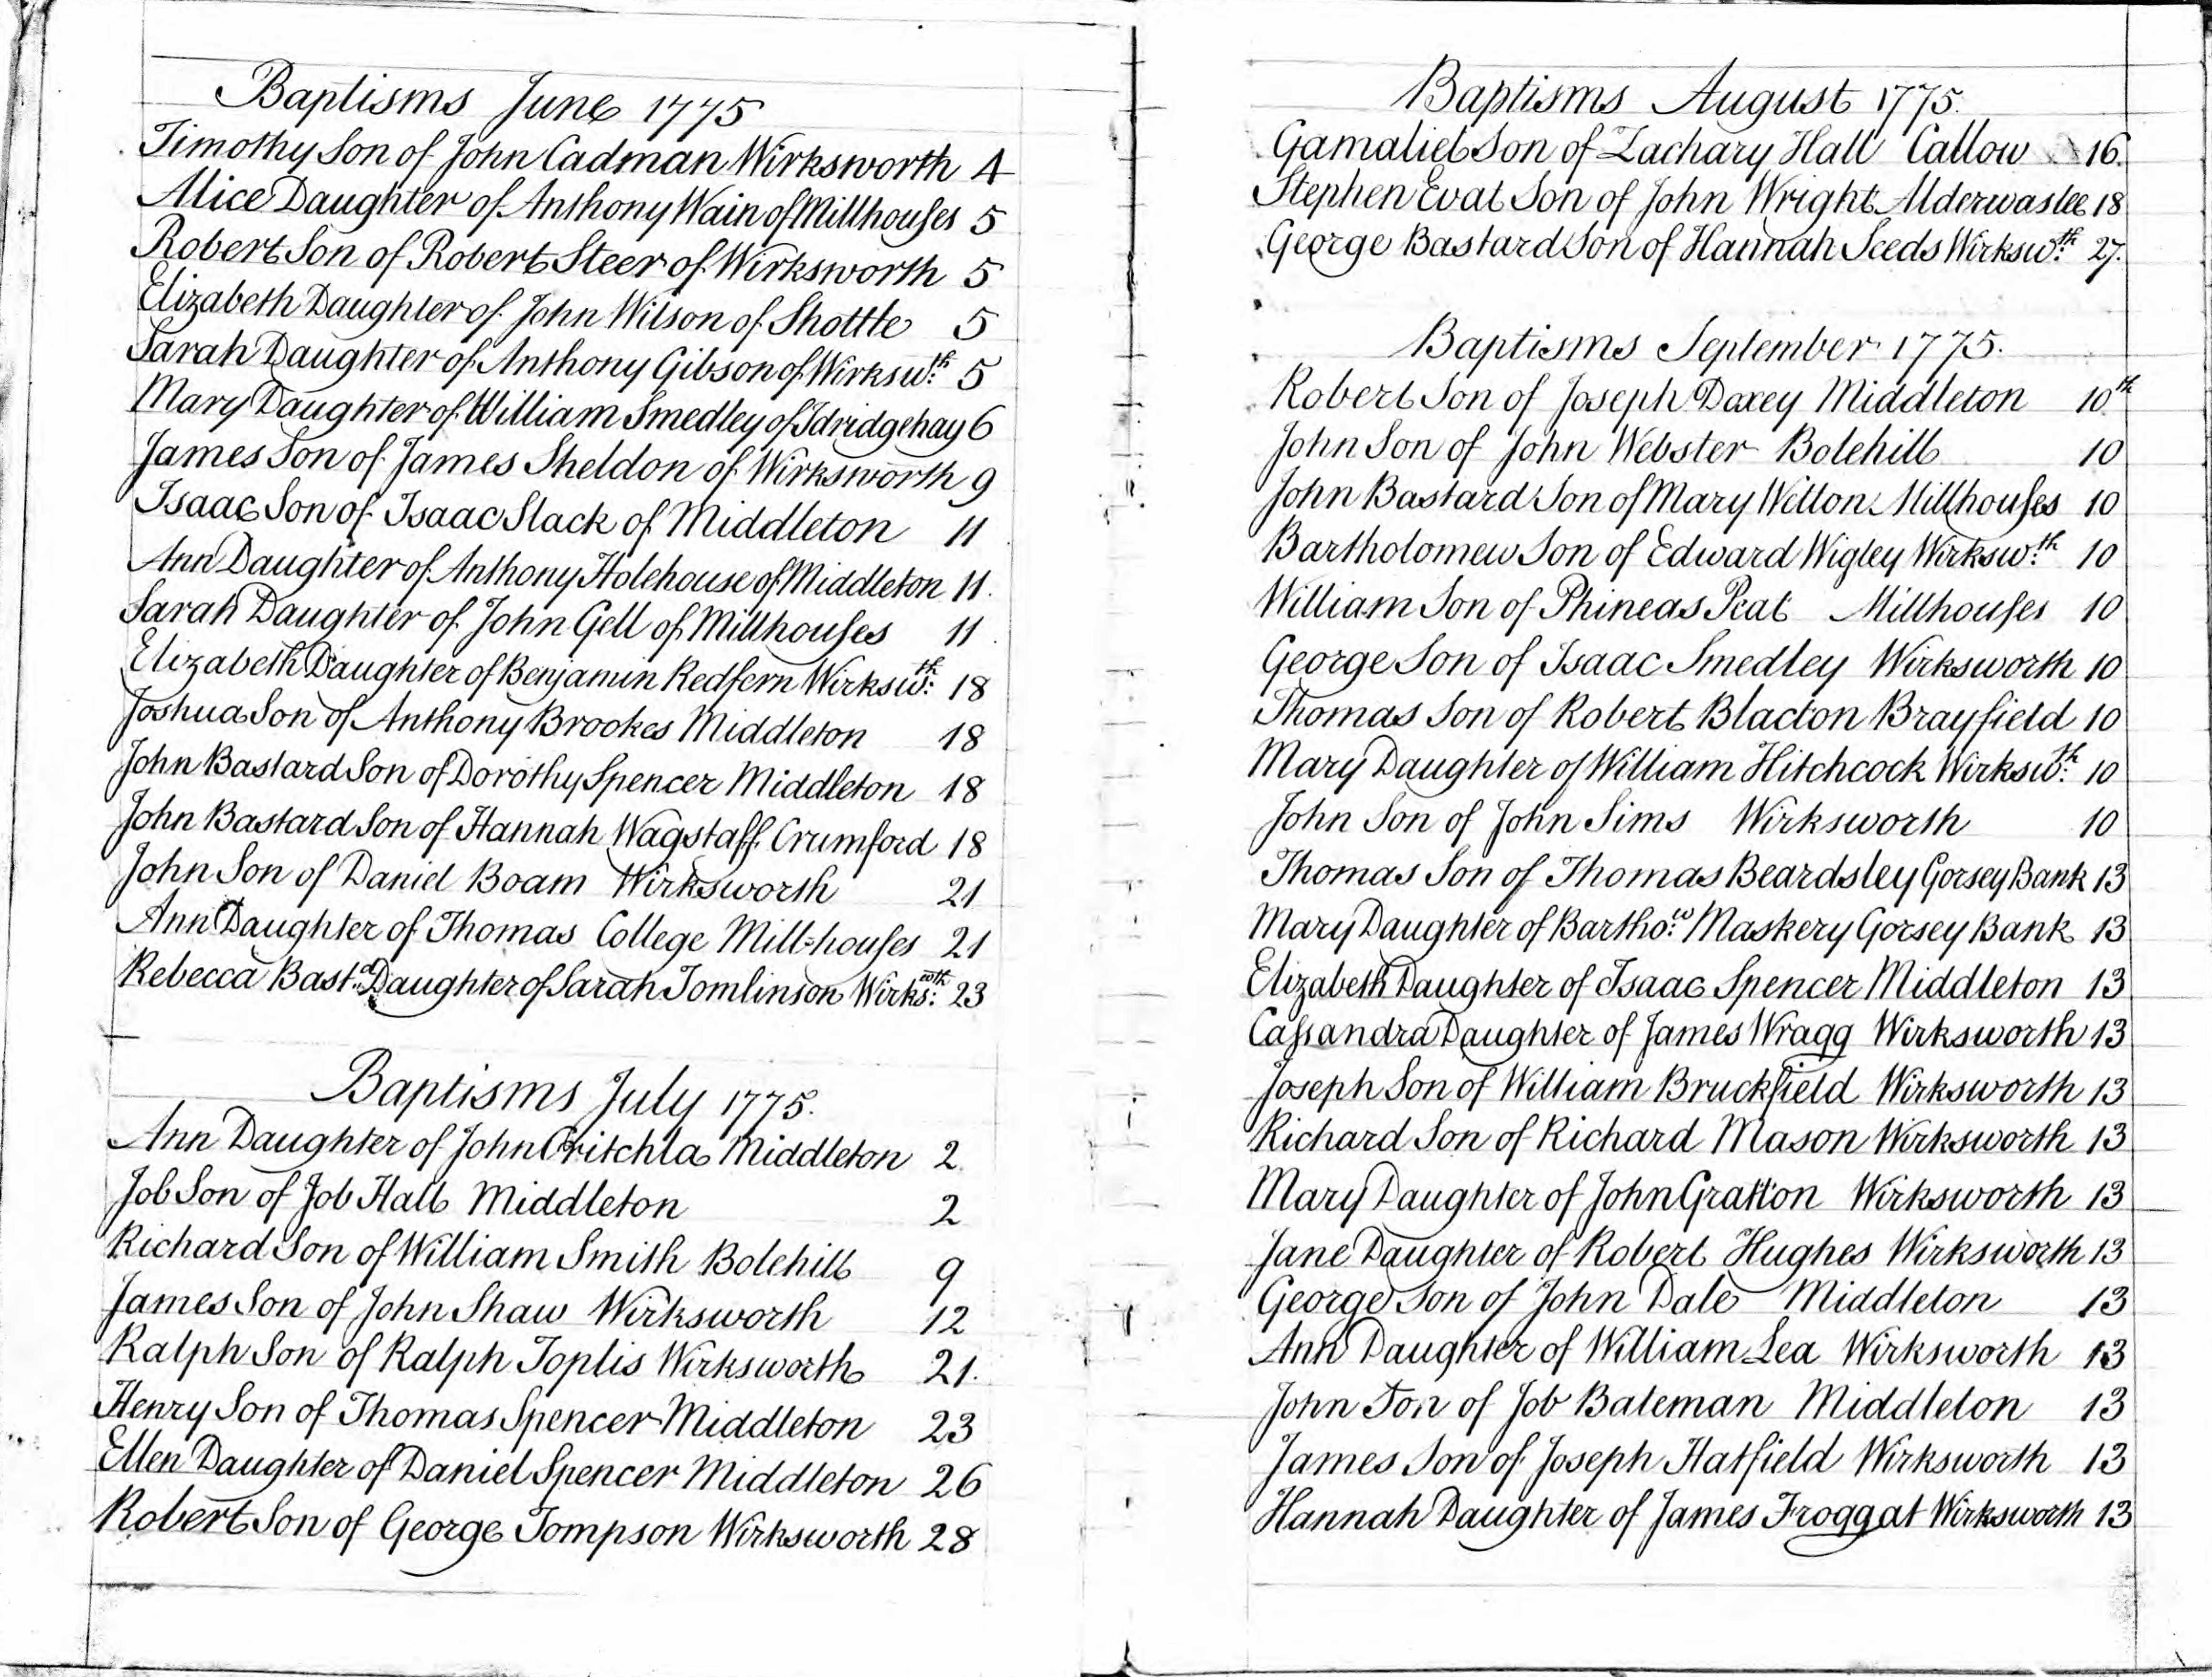 Baptisms June 1775
Timothy Son of John Cadman Wirksworth 4
Alice Daughter of Anthony Wain of Millhouſes 5
Robert Son of Robert Steer of Wirksworth 5
Elizabeth Daughter of John Wilson of Shottle 5
Sarah Daughter of Anthony Gibson of Wirksw.th 5
Mary Daughter of William Smedley of Idridgehay 6
James Son of James Sheldon of Wirksworth 9
Isaac Son of Isaac Slack of Middleton 11
Ann Daughter of Anthony Holehouse of Middleton 11.
Sarah Daughter of John Gell of Millhouſes 11
Elizabeth Daughter of Benjamin Redfern Wirksw.th 18
Joshua Son of Anthony Brookes Middleton 18
John Bastard Son of Dorothy Spencer Middleton 18
John Bastard Son of Hannah Wagstaff Crumford 18
John Son of Daniel Boam Wirksworth 21
Ann Daughter of Thomas College Mill-houſes 21
Rebecca Bast.d Daughter of Sarah Tomlinson Wirks.wth 23
Baptisms July 1775.
Ann Daughter of John Critchla Middleton 2
Job Son of Job Hall Middleton 2
Richard Son of William Smith Bolehill 9
James Son of John Shaw Wirksworth 12
Ralph Son of Ralph Toplis Wirksworth 21.
Henry Son of Thomas Spencer Middleton 23
Ellen Daughter of Daniel Spencer Middleton 26
Robert Son of George Tompson Wirksworth 28
Baptisms August 1775.
Gamaliel Son of Zachary Hall Callow 16.
Stephen Evat Son of John Wright Alderwaslee 18
George Bastard Son of Hannah Seeds Wirksw.th 27.
Baptisms September 1775.
Robert Son of Joseph Doxey Middleton 10th
John Son of John Webster Bolehill 10
John Bastard Son of Mary Witton Millhouſes 10
Bartholomew Son of Edward Wigley Wirksw.th 10
William Son of Phineas Peat Millhouſes 10
George Son of Isaac Smedley Wirksworth 10
Thomas Son of Robert Blacton Brayfield 10
Mary Daughter of William Hitchcock Wirksw.th 10
John Son of John Sims Wirksworth 10
Thomas Son of Thomas Beardsley Gorsey Bank 13
Mary Daughter of Bartho.w Maskery Gorsey Bank 13
Elizabeth Daughter of Isaac Spencer Middleton 13
Caſsandra Daughter of James Wragg Wirksworth 13
Joseph Son of William Bruckfield Wirksworth 13
Richard Son of Richard Mason Wirksworth 13
Mary Daughter of John Gratton Wirksworth 13
Jane Daughter of Robert Hughes Wirksworth 13
George Son of John Dale Middleton 13
Ann Daughter of William Lea Wirksworth 13
John Son of Job Bateman Middleton 13
James Son of Joseph Hatfield Wirksworth 13
Hannah Daughter of James Froggat Wirksworth 13